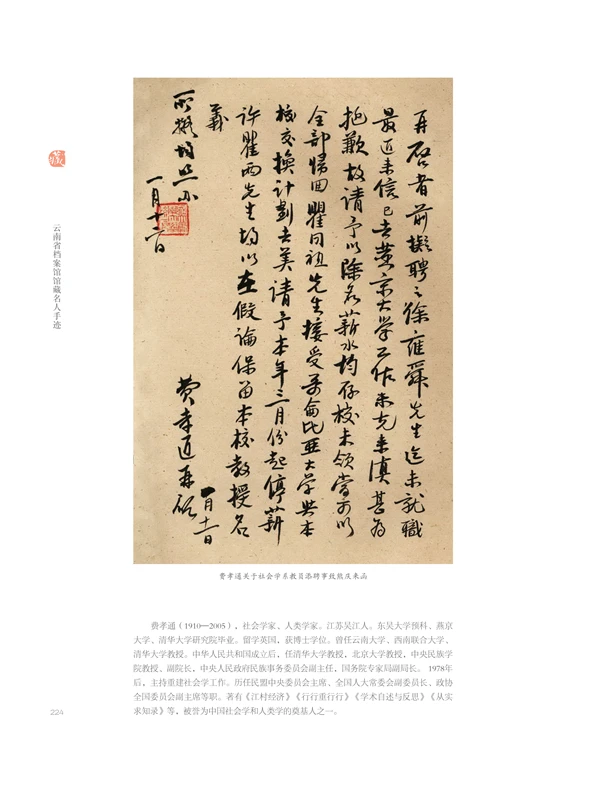 再啓者前擬聘之徐雍舜先生迄未就職
最近来信已去燕京大学工作未克来滇甚为
抱歉故请予以除名薪水均存校未领當可以
全部歸回瞿同祖先生接受哥倫比亚大学與本
校交换计劃去美请予本年三月份起停薪
许瞿两先生均以在假論保留本校教授名
義
费孝通再啟
一月十一日
所擬均照不
一月十二日
藏
云南省档案馆馆藏名人手迹
费孝通关于社会学系教员添聘事致熊庆来函
费孝通（1910—2005），社会学家、人类学家。江苏吴江人。东吴大学预科、燕京
大学、清华大学研究院毕业。留学英国，获博士学位。曾任云南大学、西南联合大学、
清华大学教授。中华人民共和国成立后，任清华大学教授，北京大学教授，中央民族学
院教授、副院长，中央人民政府民族事务委员会副主任，国务院专家局副局长。1978年
后，主持重建社会学工作。历任民盟中央委员会主席、全国人大常委会副委员长、政协
全国委员会副主席等职。著有《江村经济》《行行重行行》《学术自述与反思》《从实
求知录》等，被誉为中国社会学和人类学的奠基人之一。
224